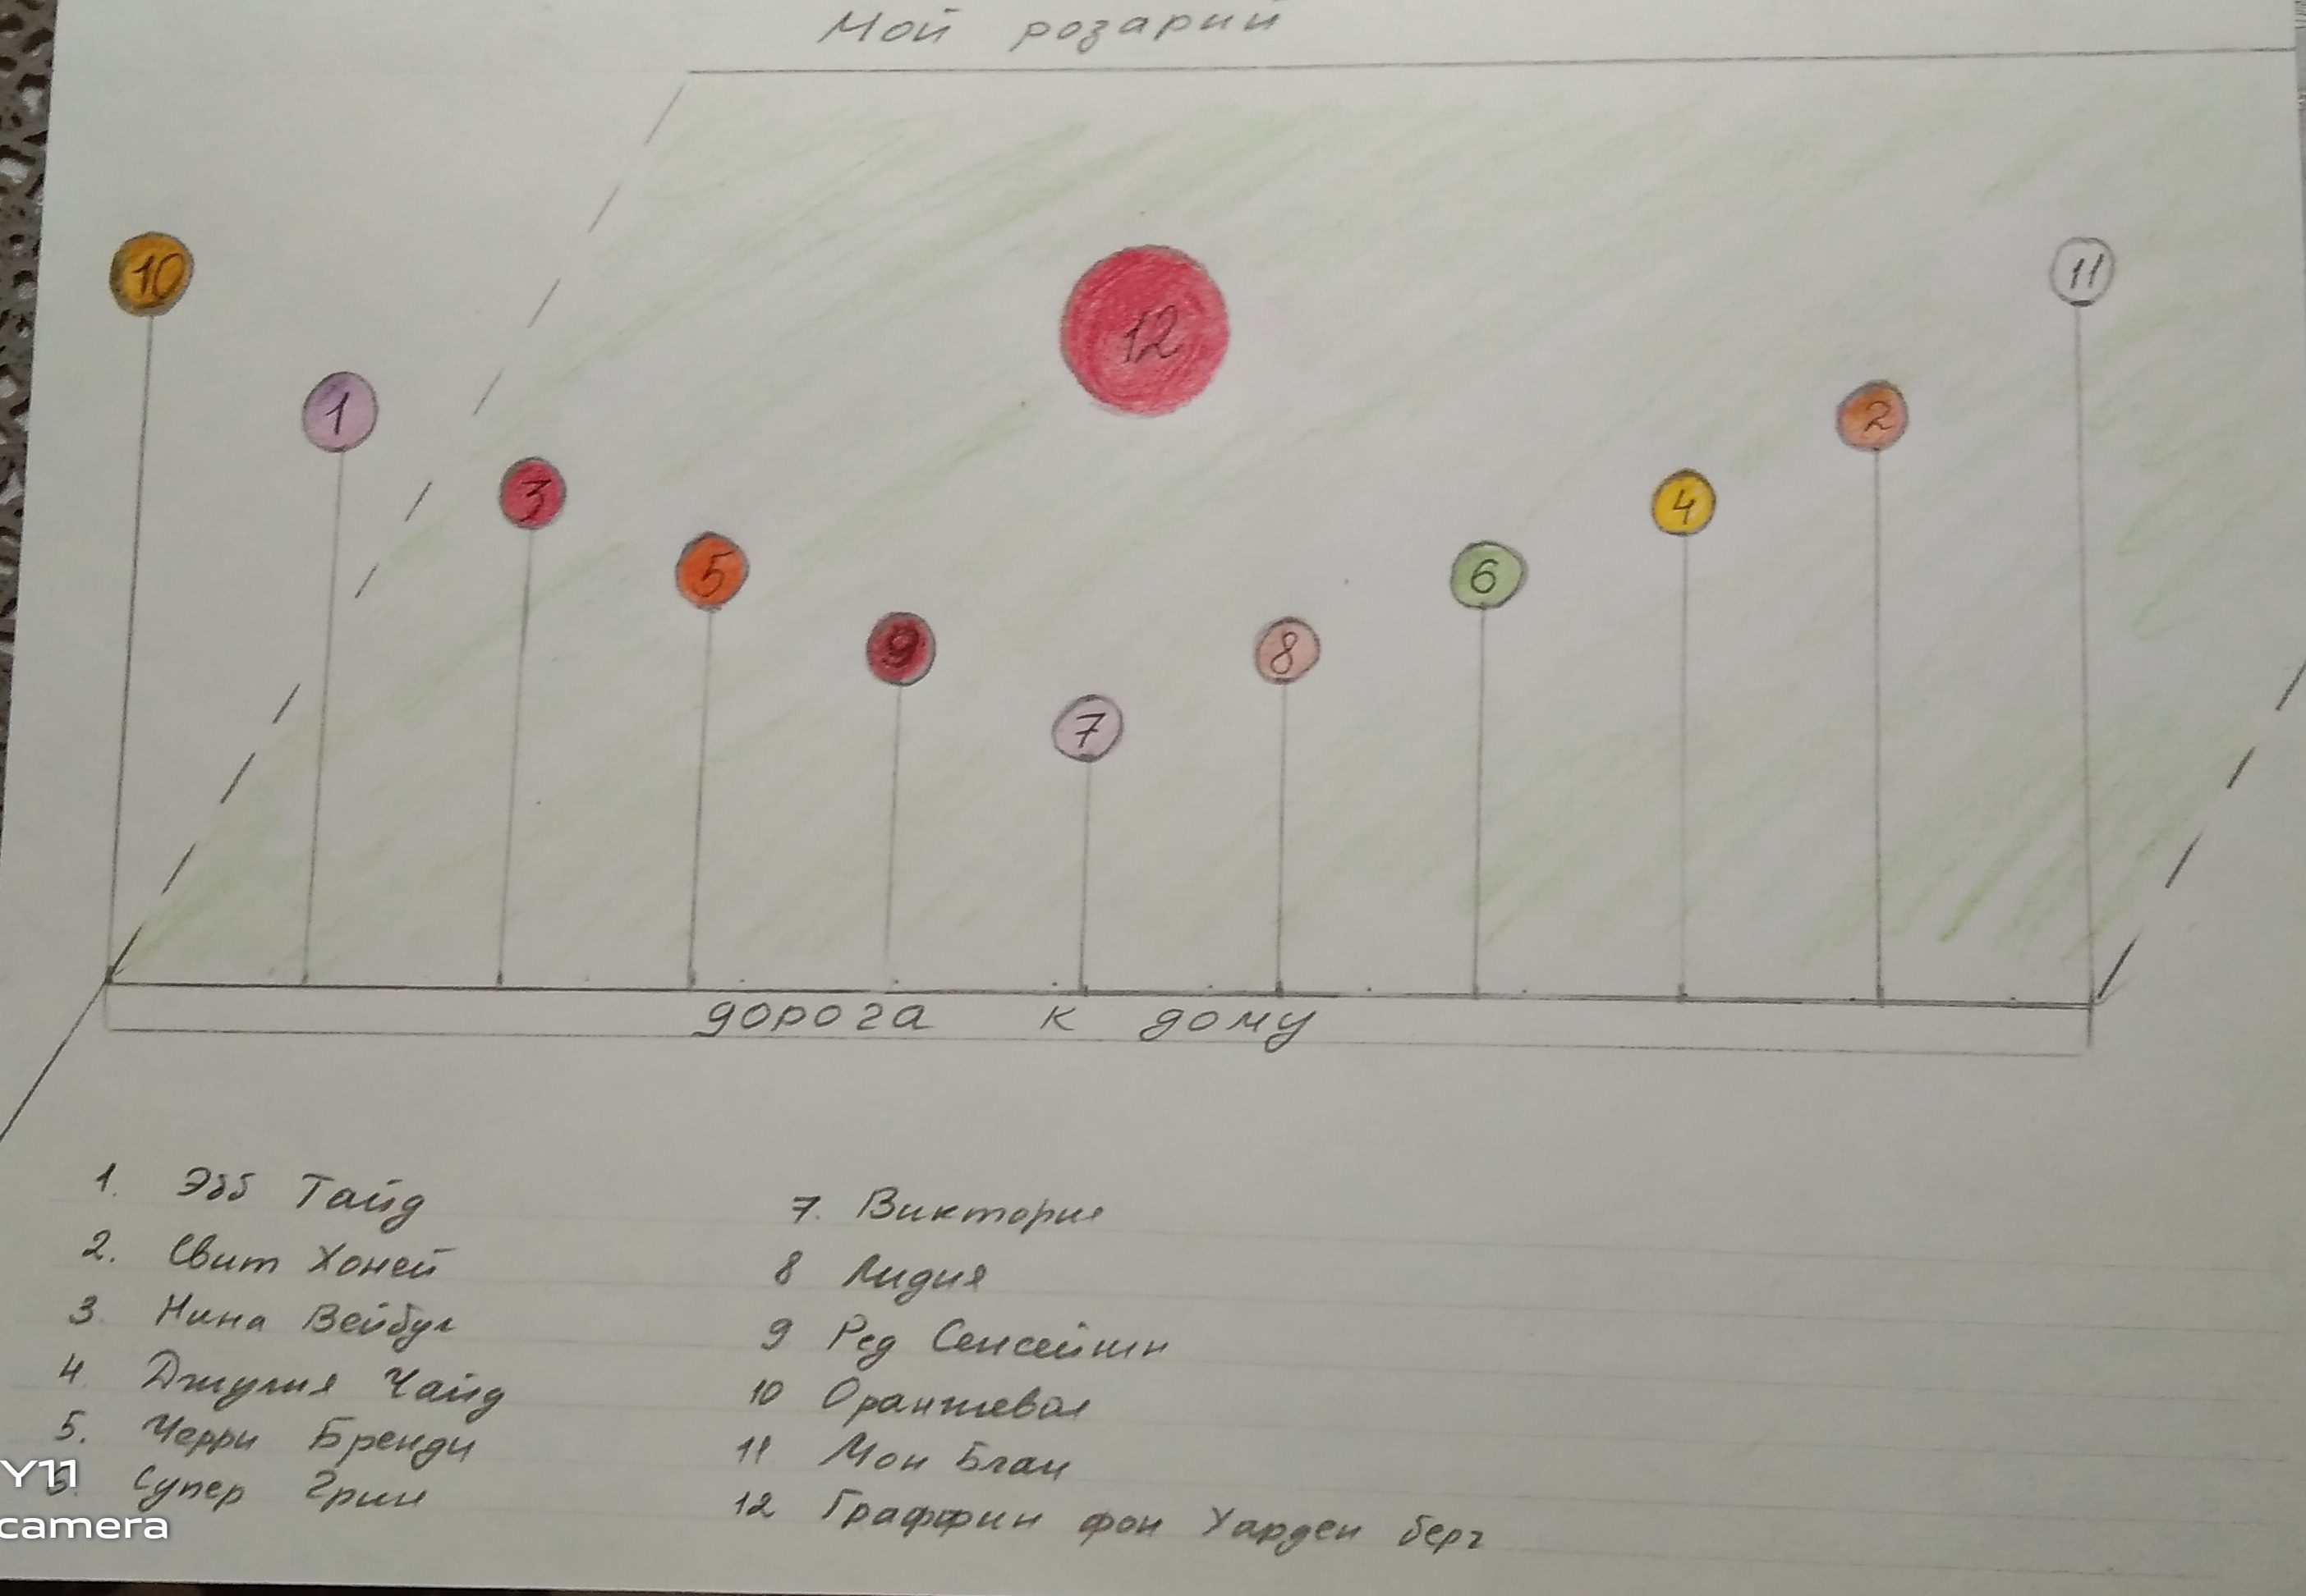 Мой розарий
10
11
12
1
2
3
4
5
6
9
8
7
дорога к дому
1. Эбб Тайд
2. Свит Хоней
3. Нина Вейбул
4. Джулия Чайд
5. Черри Бренди
6. Супер Грин
7. Виктория
8 Лидия
9 Ред Сенсейшн
10 Оранжевая
11 Мон Блан
12 Граффин фон Уарден берг
Y11
camera